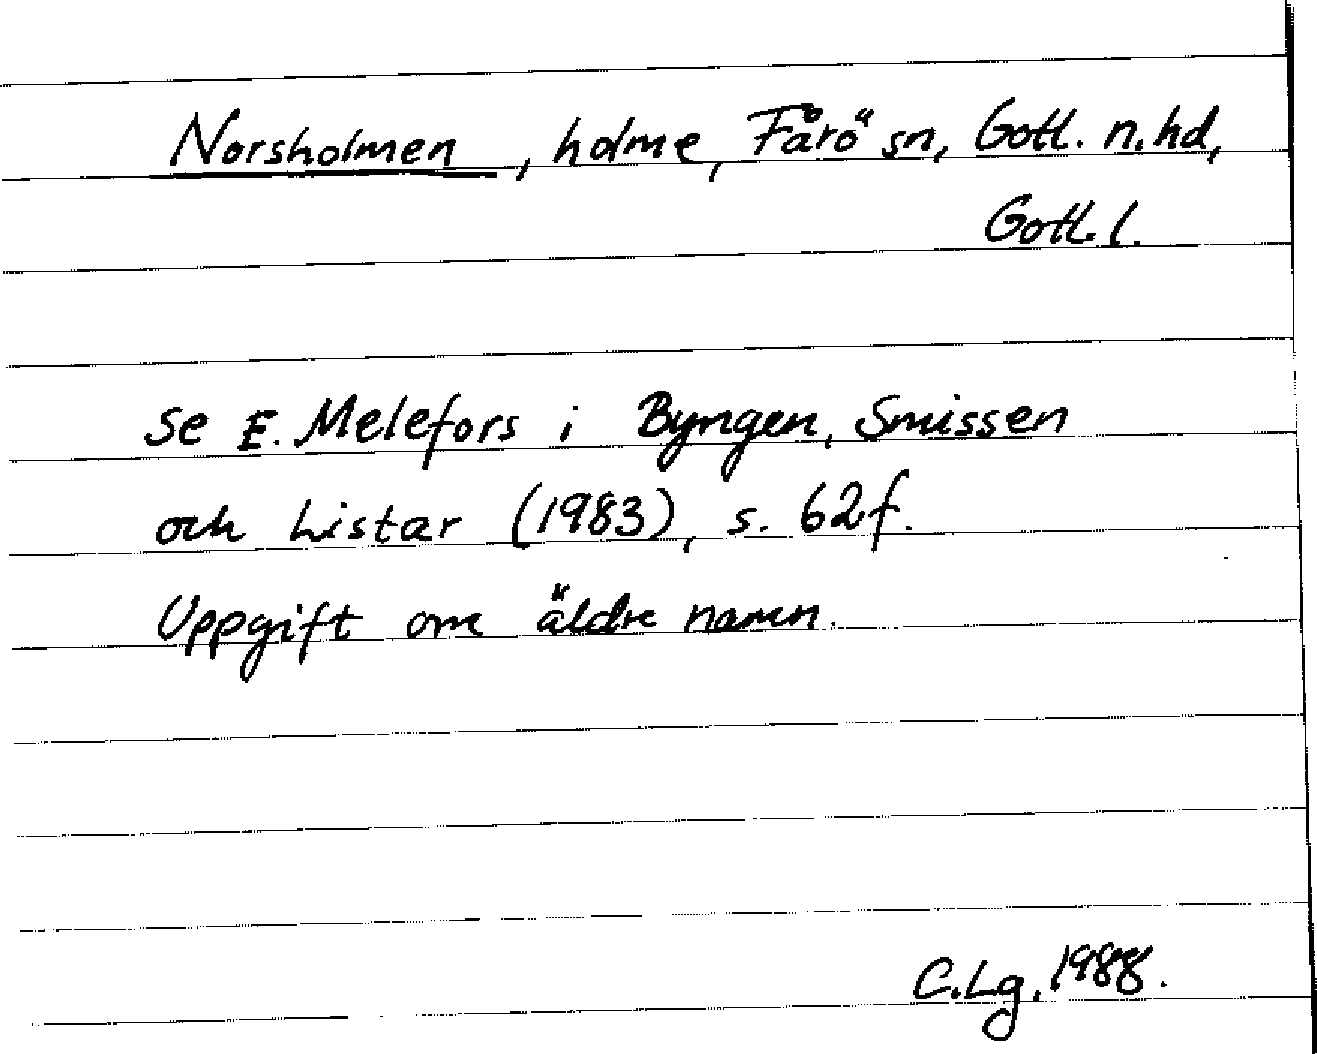 Norsholmen, holme, Fårö sn, Gotl. n. hd,
Gotl. l.
se E. Melefors i Byngen, Smissen
och Listar (1983), s. 62 f.
Uppgift om äldre namn.
C.Lg. 1988.